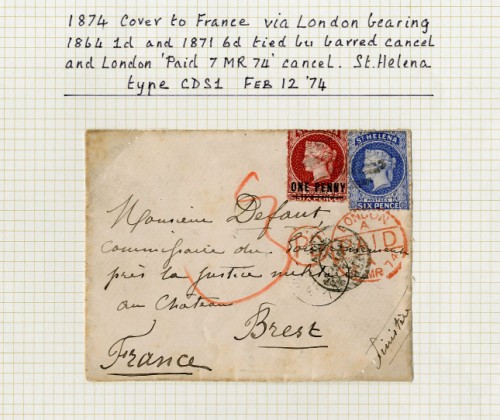 1874 Cover to France via London bearing
1864 1d and 1871 6d tied by barred cancel
and London 'Paid 7 MR 74' cancel. St. Helena
type CDS1 FEB 12 '74
ONE PENNY
SIX PENCE
ST HELENA
SIX PENCE
LONDON
A
PAID
MR 74
3
Monsieur Defaut,
Commissaire du
près la Justice
au Château
Brest
France
Finistère